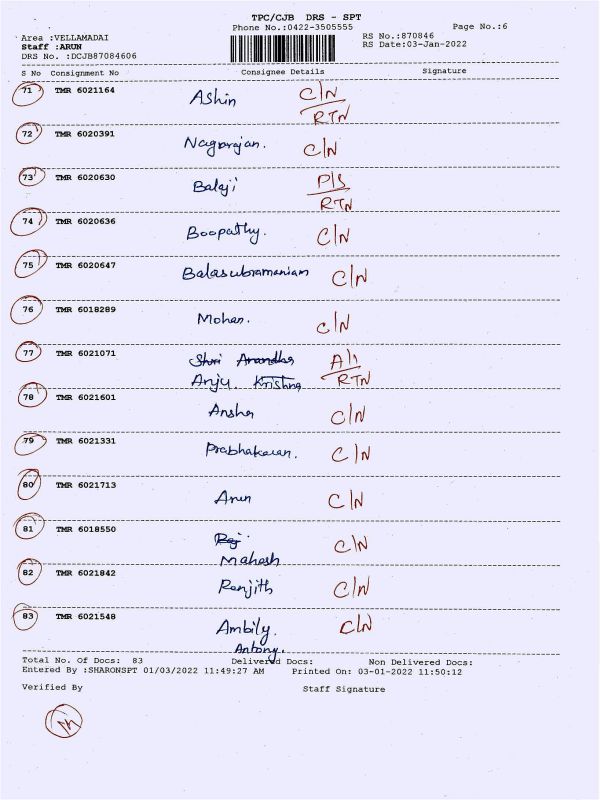 TPC/CJB DRS - SPT
Phone No.:0422-3505555 Page No.:6
Area :VELLAMADAI RS No.:870846
Staff :ARUN RS Date:03-Jan-2022
DRS No. :DCJB87084606
S No Consignment No Consignee Details Signature
71 TMR 6021164 Ashin C/N
RTN
72 TMR 6020391 Nagarajan. C/N
73 TMR 6020630 Balaji P/S
RTN
74 TMR 6020636 Boopathy. C/N
75 TMR 6020647 Balasubramaniam C/N
76 TMR 6018289 Mohan. C/N
77 TMR 6021071 Shri Anandha
Anju. Krishna RTN
78 TMR 6021601 Ansha C/N
79 TMR 6021331 Prabhakaran. C/N
80 TMR 6021713 Arun C/N
81 TMR 6018550 Raj. C/N
Mahesh
82 TMR 6021842 Renjith C/N
83 TMR 6021548 Ambily. C/N
Antony.
Total No. Of Docs: 83 Delivered Docs: Non Delivered Docs:
Entered By :SHARONSPT 01/03/2022 11:49:27 AM Printed On: 03-01-2022 11:50:12
Verified By Staff Signature